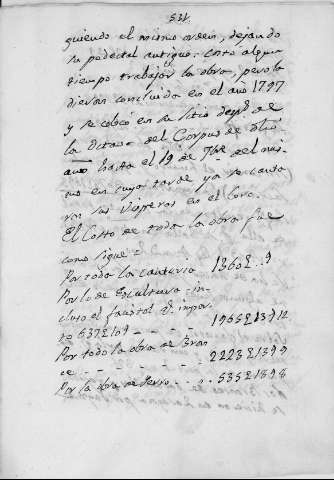 531.
guiendo el mismo orden, dejando
su pedestal antiguo: costó algun
tiempo y trabajo la obra, pero la
dieron concluida en el año 1797
y se colocó en su sitio desp.s de
la Octava del Corpus de dho
año hasta el 19 de 7bre del mis-
mo en cuya tarde ya se canta
ron las Visperas en el Coro.
El Costo de toda la obra fue
como sigue =
Por toda la canteria 1360 £ .. 9
Por lo de Escultura in-
cluso el faustol q. impor
to 637 £ 10 9 - - - - 1955 £ 13 9 12
Por todo la obra de Bron
ce - - - - 2223 £ 13 9 9
Por la obra de Yerro - - - 535 £ 18 9 8